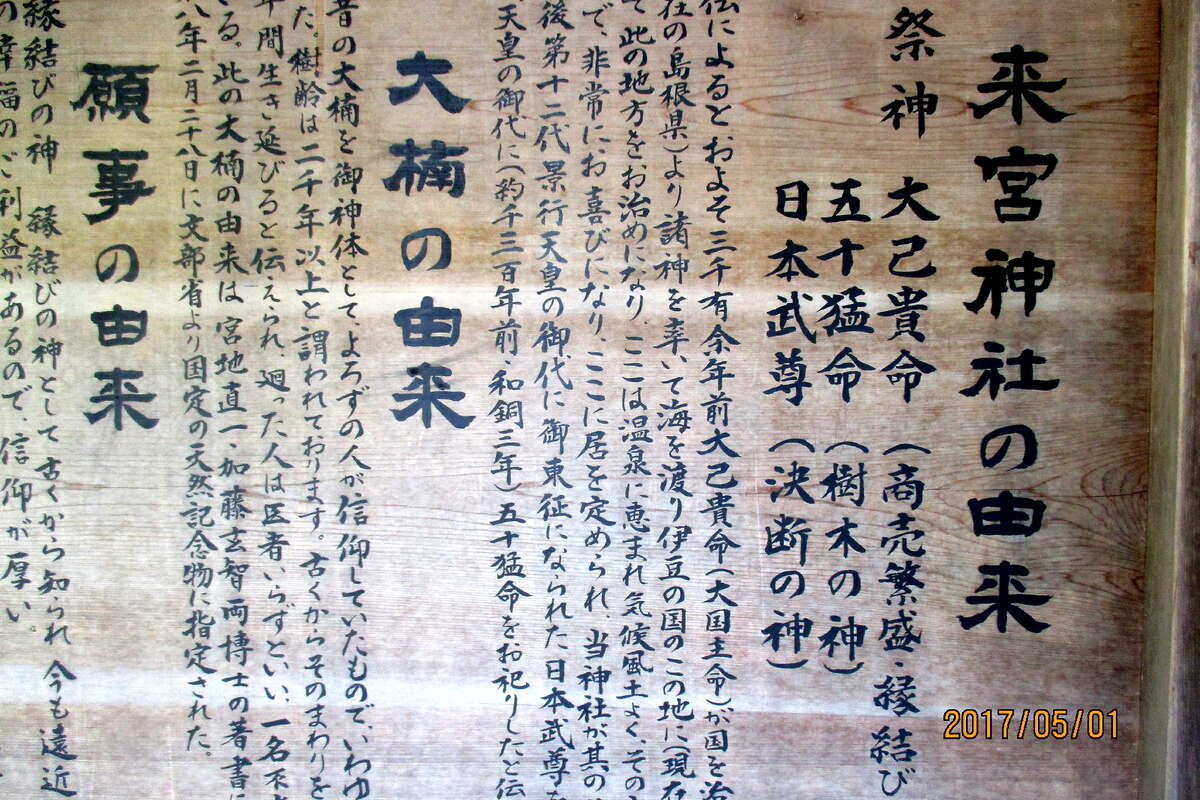 来宮神社の由来
祭神 大己貴命(商売繁盛・縁結び
五十猛命(樹木の神)
日本武尊(決断の神)
伝によるとおよそ三千有余年前大己貴命(大国主命)が国を治
在の島根県)より諸神を率いて海を渡り伊豆の国のこの地に(現在
て此の地方をお治めになり、ここは温泉に恵まれ気候風土よく、その
で、非常にお喜びになり、ここに居を定められ、当神社が其の
後第十二代景行天皇の御代に御東征になられた日本武尊を
天皇の御代に(約千三百年前・和銅三年)五十猛命をお祀りしたと伝
大楠の由来
昔の大楠を御神体として、よろずの人が信仰していたもので、いわゆ
た。樹齢は二千年以上と謂われております。古くからそのまわりを
年間生き延びると伝えられ、廻った人は医者いらずといい、一名不
る。此の大楠の由来は宮地直一、加藤玄智両博士の著書に
八年二月二十八日に文部省より国定の天然記念物に指定された。
願事の由来
縁結びの神 縁結びの神として古くから知られ 今も遠近
の幸福のご利益があるので、信仰が厚い。
2017/05/01